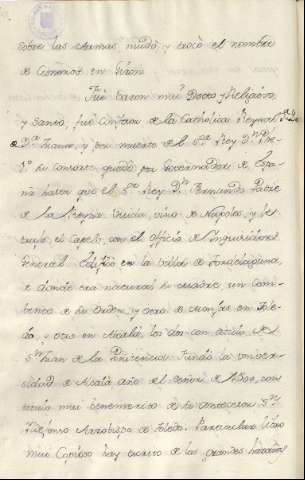 sobre las armas mudó, y trocó el nombre
de Ximenez en Fran.
Fue varon mui Docto y Religioso,
y Santo, fue Confesor de la Catholica Reyna
D.ª Juana, y por muerte del S.or Rey D.n Phe-
1.º su consorte, quedó por Governador de Espa-
ña hasta que el S.or Rey D.n Fernando Padre
de la Reyna vino de Napoles, y le
el Capelo, con el Oficio de Inquisidor
General. Edificó en la villa de
de donde era natural su madre, un Com-
bento de su Orden, y otro de Monjas en Tole-
do, y otro en Alcalá, los dos con titulo de
S.n Juan de la Penitencia. Fundó la Univer-
sidad de Alcalá año del Señor de 1500, con
titulo mui benemerito de su antecesor S.n
Ildefonso Arzobispo de Toledo. Particular libro
mui Copioso hay escrito de las grandes hazañas